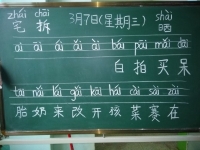 zhái chāi shài
宅 拆 3月7日(星期三) 晒
āi ái ǎi ài bái pāi mǎi dāi
白 拍 买 呆
tāi nǎi lái gǎi kāi hái cài sài zài
胎 奶 来 改 开 孩 菜 赛 在